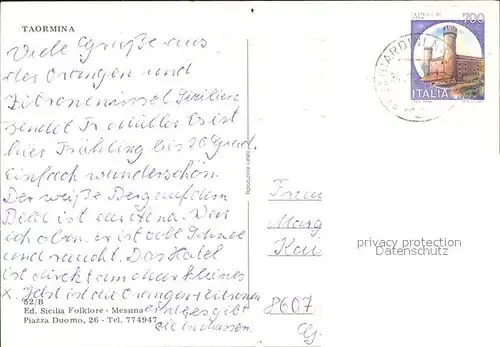 TAORMINA
Viele Grüße aus
der Orangen und
Zitroneninsel Sizilien
sendet Fr Müller Es ist
hier Frühling bis 20 Grad.
Einfach wunderschön.
Der weiße Berg auf dem
Bild ist der Ätna. Dar
ich oben. er ist voll Schnee
und raucht. Das Hotel
ist direkt am Meer kleines
x. Jetzt ist die Orangen + Zitronen
52/B
Ed. Sicilia Folklore - Messina
Piazza Duomo, 26 - Tel. 774947
sie in Massen.
CASTELLO DI
700
ITALIA
GIARDINI N
Frau
Marg
Kau
8607
privacy protection
Datenschutz